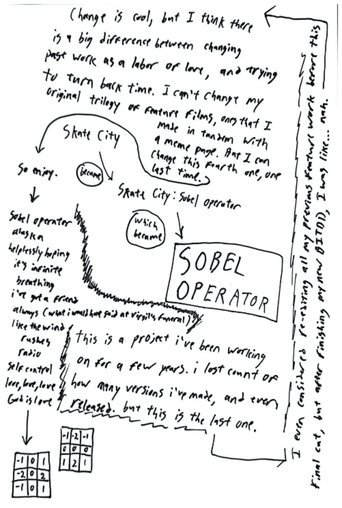 Change is cool, but I think there
is a big difference between changing
past work as a labor of love, and trying
to turn back time. I can't change my
original trilogy of feature films, ones that I
made in tandem with
a meme page. But I can
change this fourth one, one
last time.
Skate City
became
Skate City: Sobel operator
which
became
SOBEL
OPERATOR
So enjoy.
Sobel operator
alaska
helplessly hoping
it's infinite
breathing
i've got a friend
always (what would have said at virgil's funeral)?
like the wind
rushes
radio
self control
love, love, love
God is love
-1 0 1
-2 0 2
-1 0 1
-1 -2 -1
0 0 0
1 2 1
this is a project i've been working
on for a few years. i lost count of
how many versions i've made, and even
released. but this is the last one.
I even considered re-editing all my previous feature work before this
final cut, but after finishing my new BITO(?), I was like... nah.